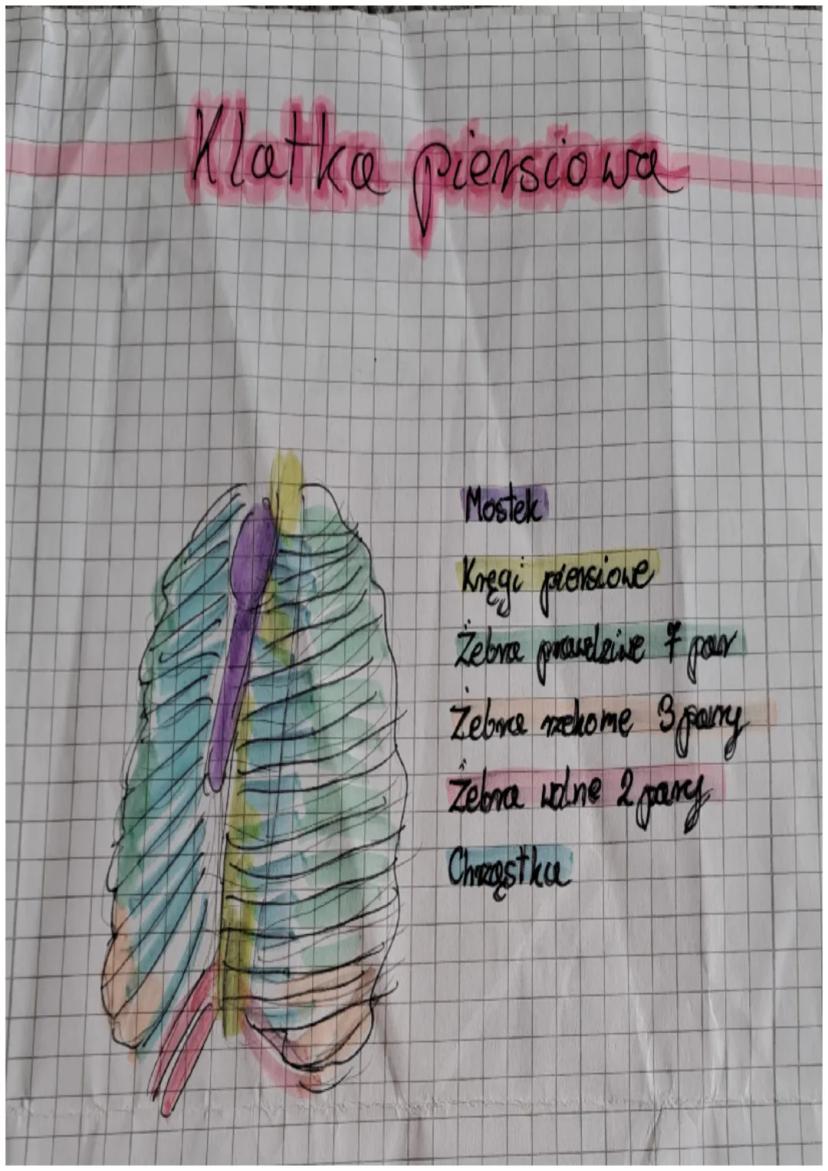 Klatka piersiowa
Mostek
Kręgi piersiowe
Żebra prawdziwe 7 par
Żebra rzekome 3 pary
Żebra wolne 2 pary
Chrząstka